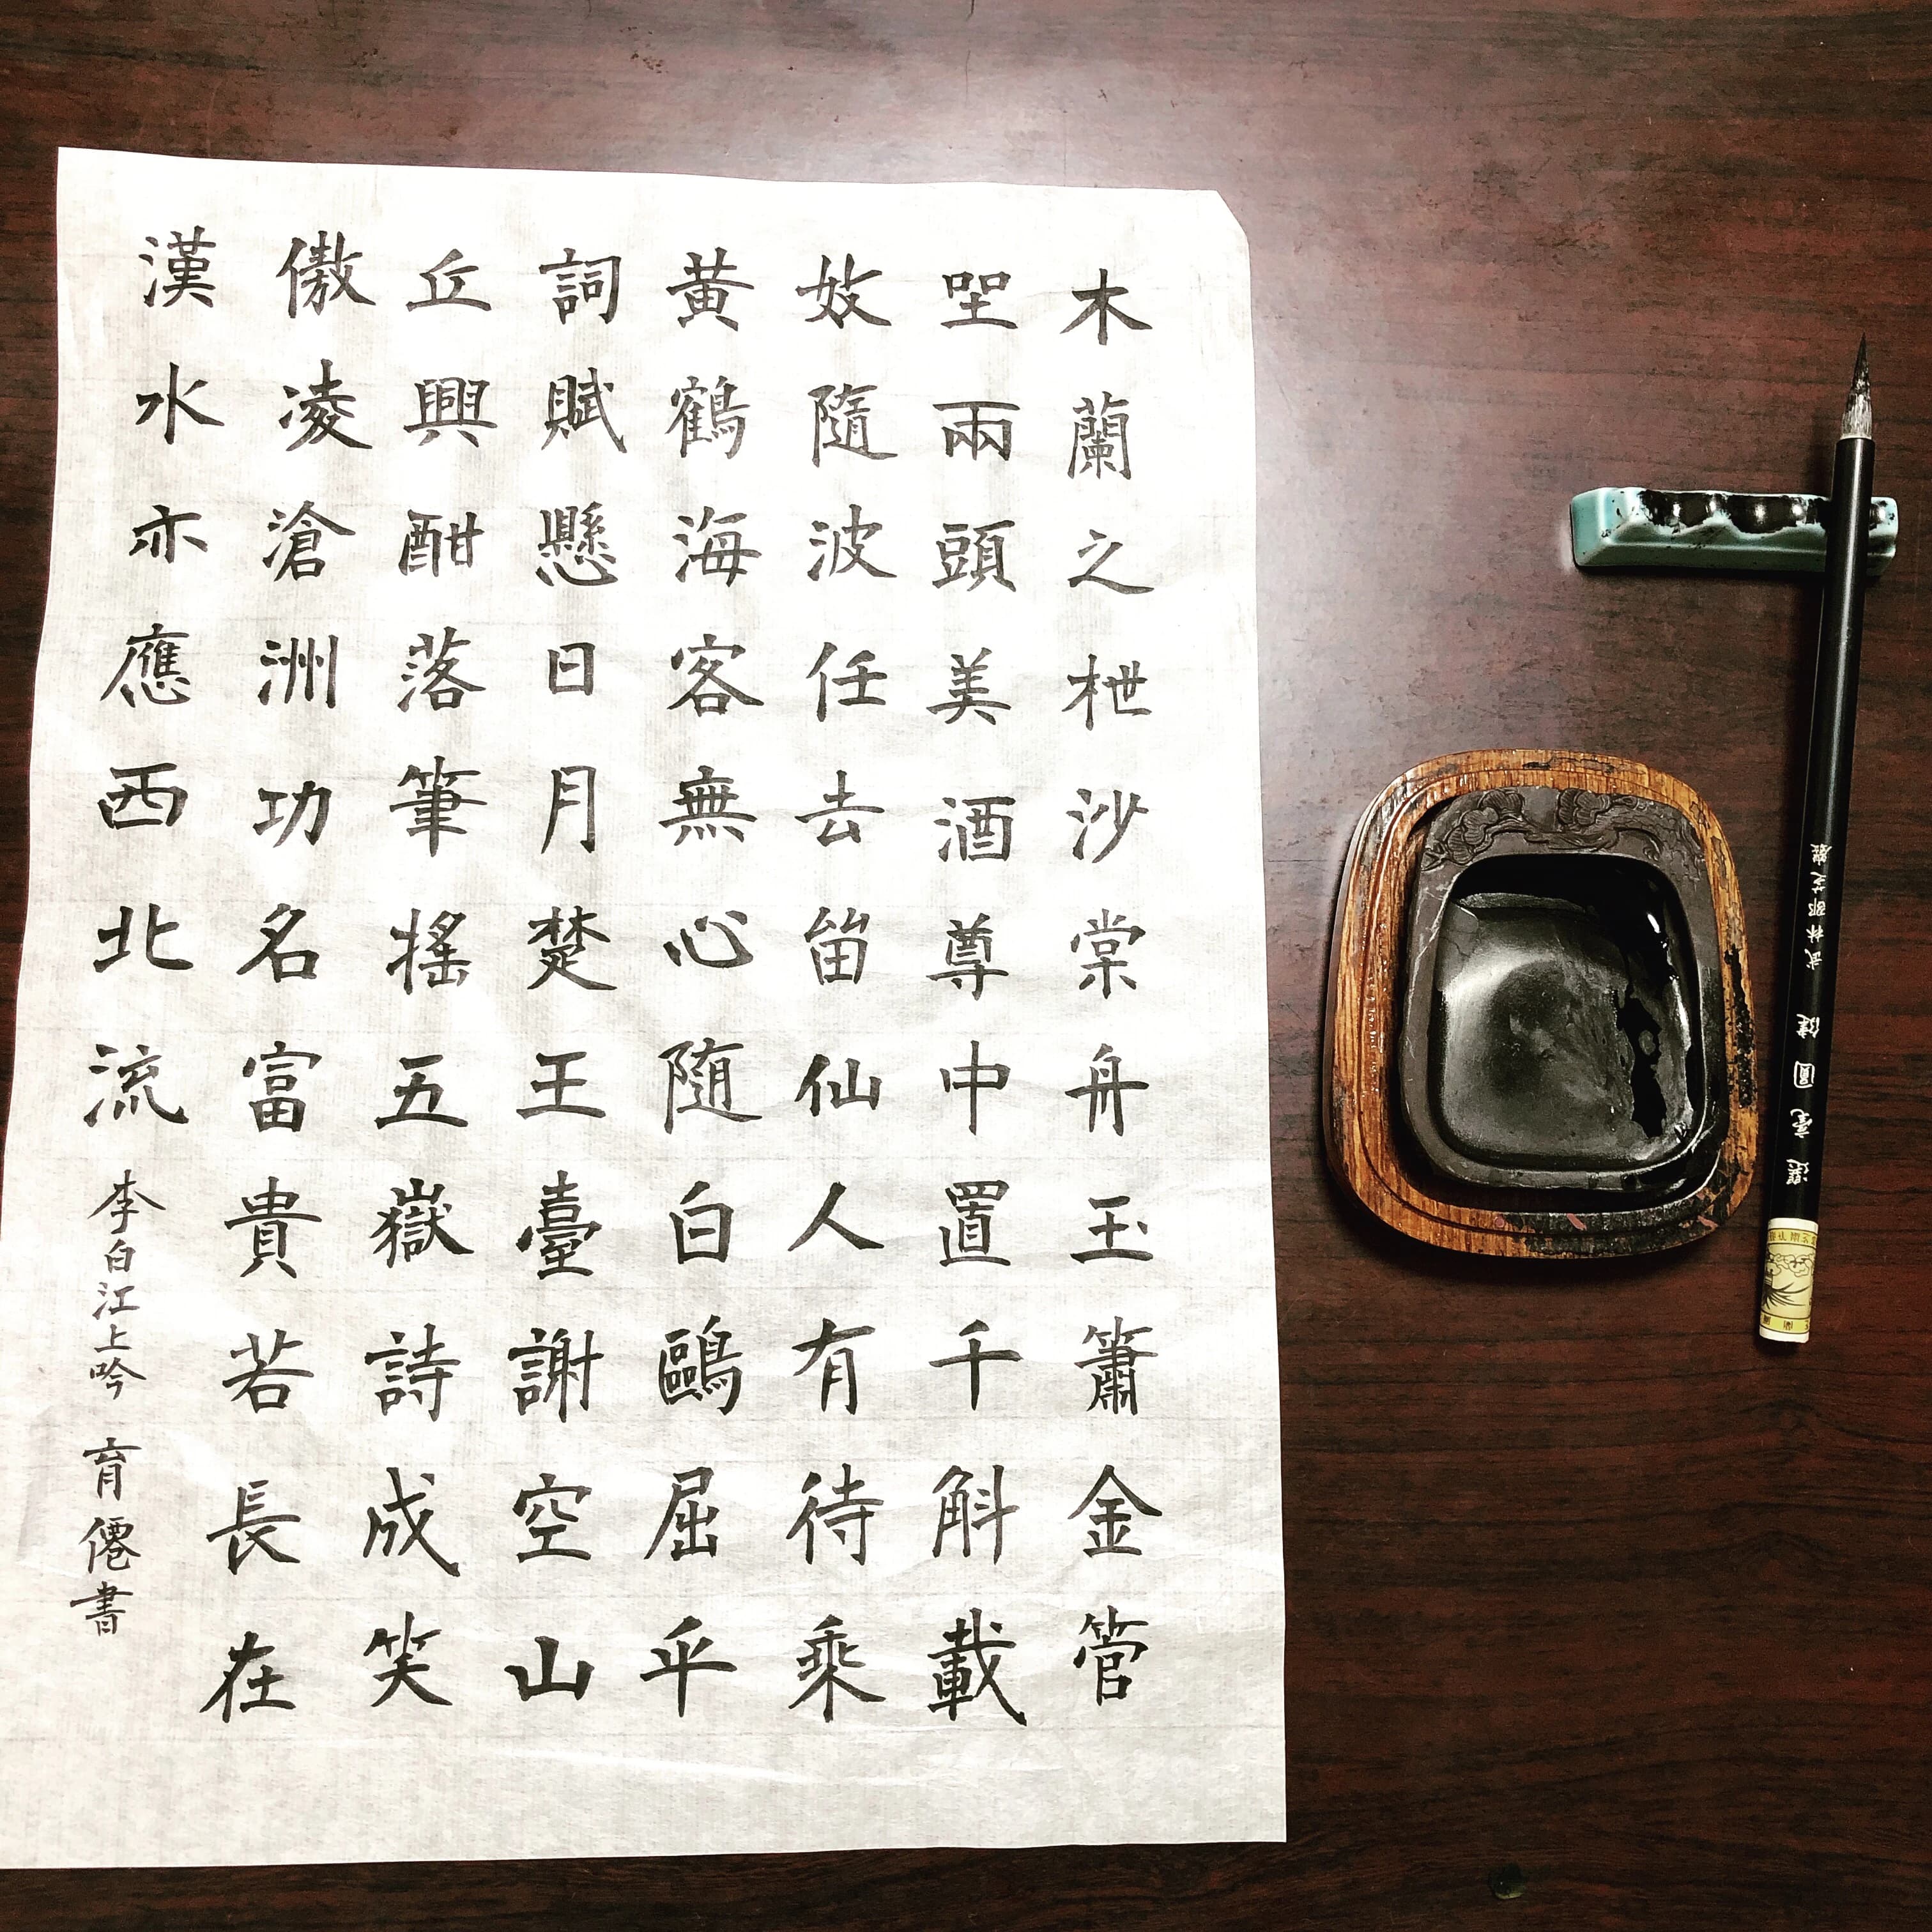 木蘭之枻沙棠舟玉簫金管
坐兩頭美酒尊中置千斛載
妓隨波任去留仙人有待乘
黃鶴海客無心隨白鷗屈平
詞賦懸日月楚王臺謝空山
丘興酣落筆搖五嶽詩成笑
傲凌滄洲功名富貴若長在
漢水亦應西北流 李白江上吟 育僊書
選毫圓健 武林邵芝巖